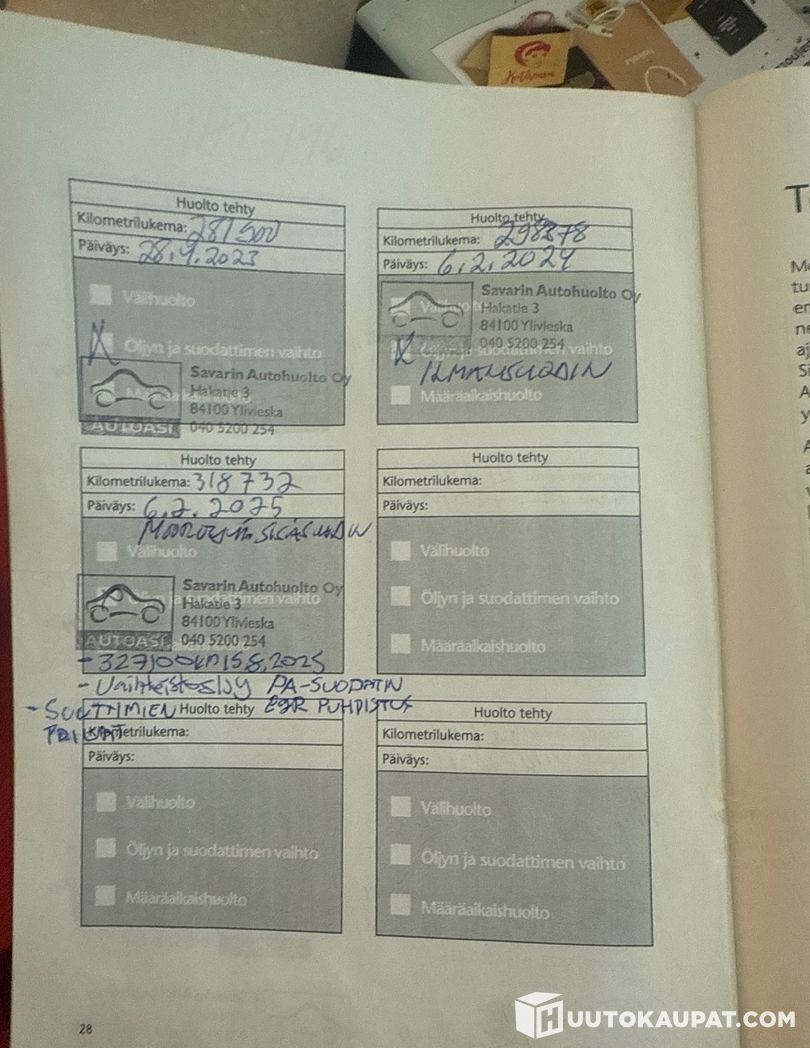 Huolto tehty
Kilometrilukema: 281500
Päiväys: 28.9.2023
Välihuolto
X Öljyn ja suodattimen vaihto
Savarin Autohuolto Oy
Hakatie 3
84100 Ylivieska
AUTOASI 040 5200 254
Huolto tehty
Kilometrilukema: 298878
Päiväys: 6.2.2024
Savarin Autohuolto Oy
Välihuolto Hakatie 3
84100 Ylivieska
040 5200 254
X Öljyn ja suodattimen vaihto
ILMANSUODIN
Määräaikaishuolto
Huolto tehty
Kilometrilukema: 318732
Päiväys: 6.2.2025
SISÄSUODIN
Välihuolto
Savarin Autohuolto Oy
Öljyn ja suodattimen vaihto
Hakatie 3
84100 Ylivieska
AUTOASI 040 5200 254
- 327100km 15.8.2025
- Vaihteistoöljy PA-SUODATIN
- SUUTTIMIEN EGR PUHDISTUS
Huolto tehty
Kilometrilukema:
Päiväys:
Välihuolto
Öljyn ja suodattimen vaihto
Määräaikaishuolto
Huolto tehty
Kilometrilukema:
Päiväys:
Välihuolto
Öljyn ja suodattimen vaihto
Määräaikaishuolto
Huolto tehty
Kilometrilukema:
Päiväys:
Välihuolto
Öljyn ja suodattimen vaihto
Määräaikaishuolto
28
HUUTOKAUPAT.COM